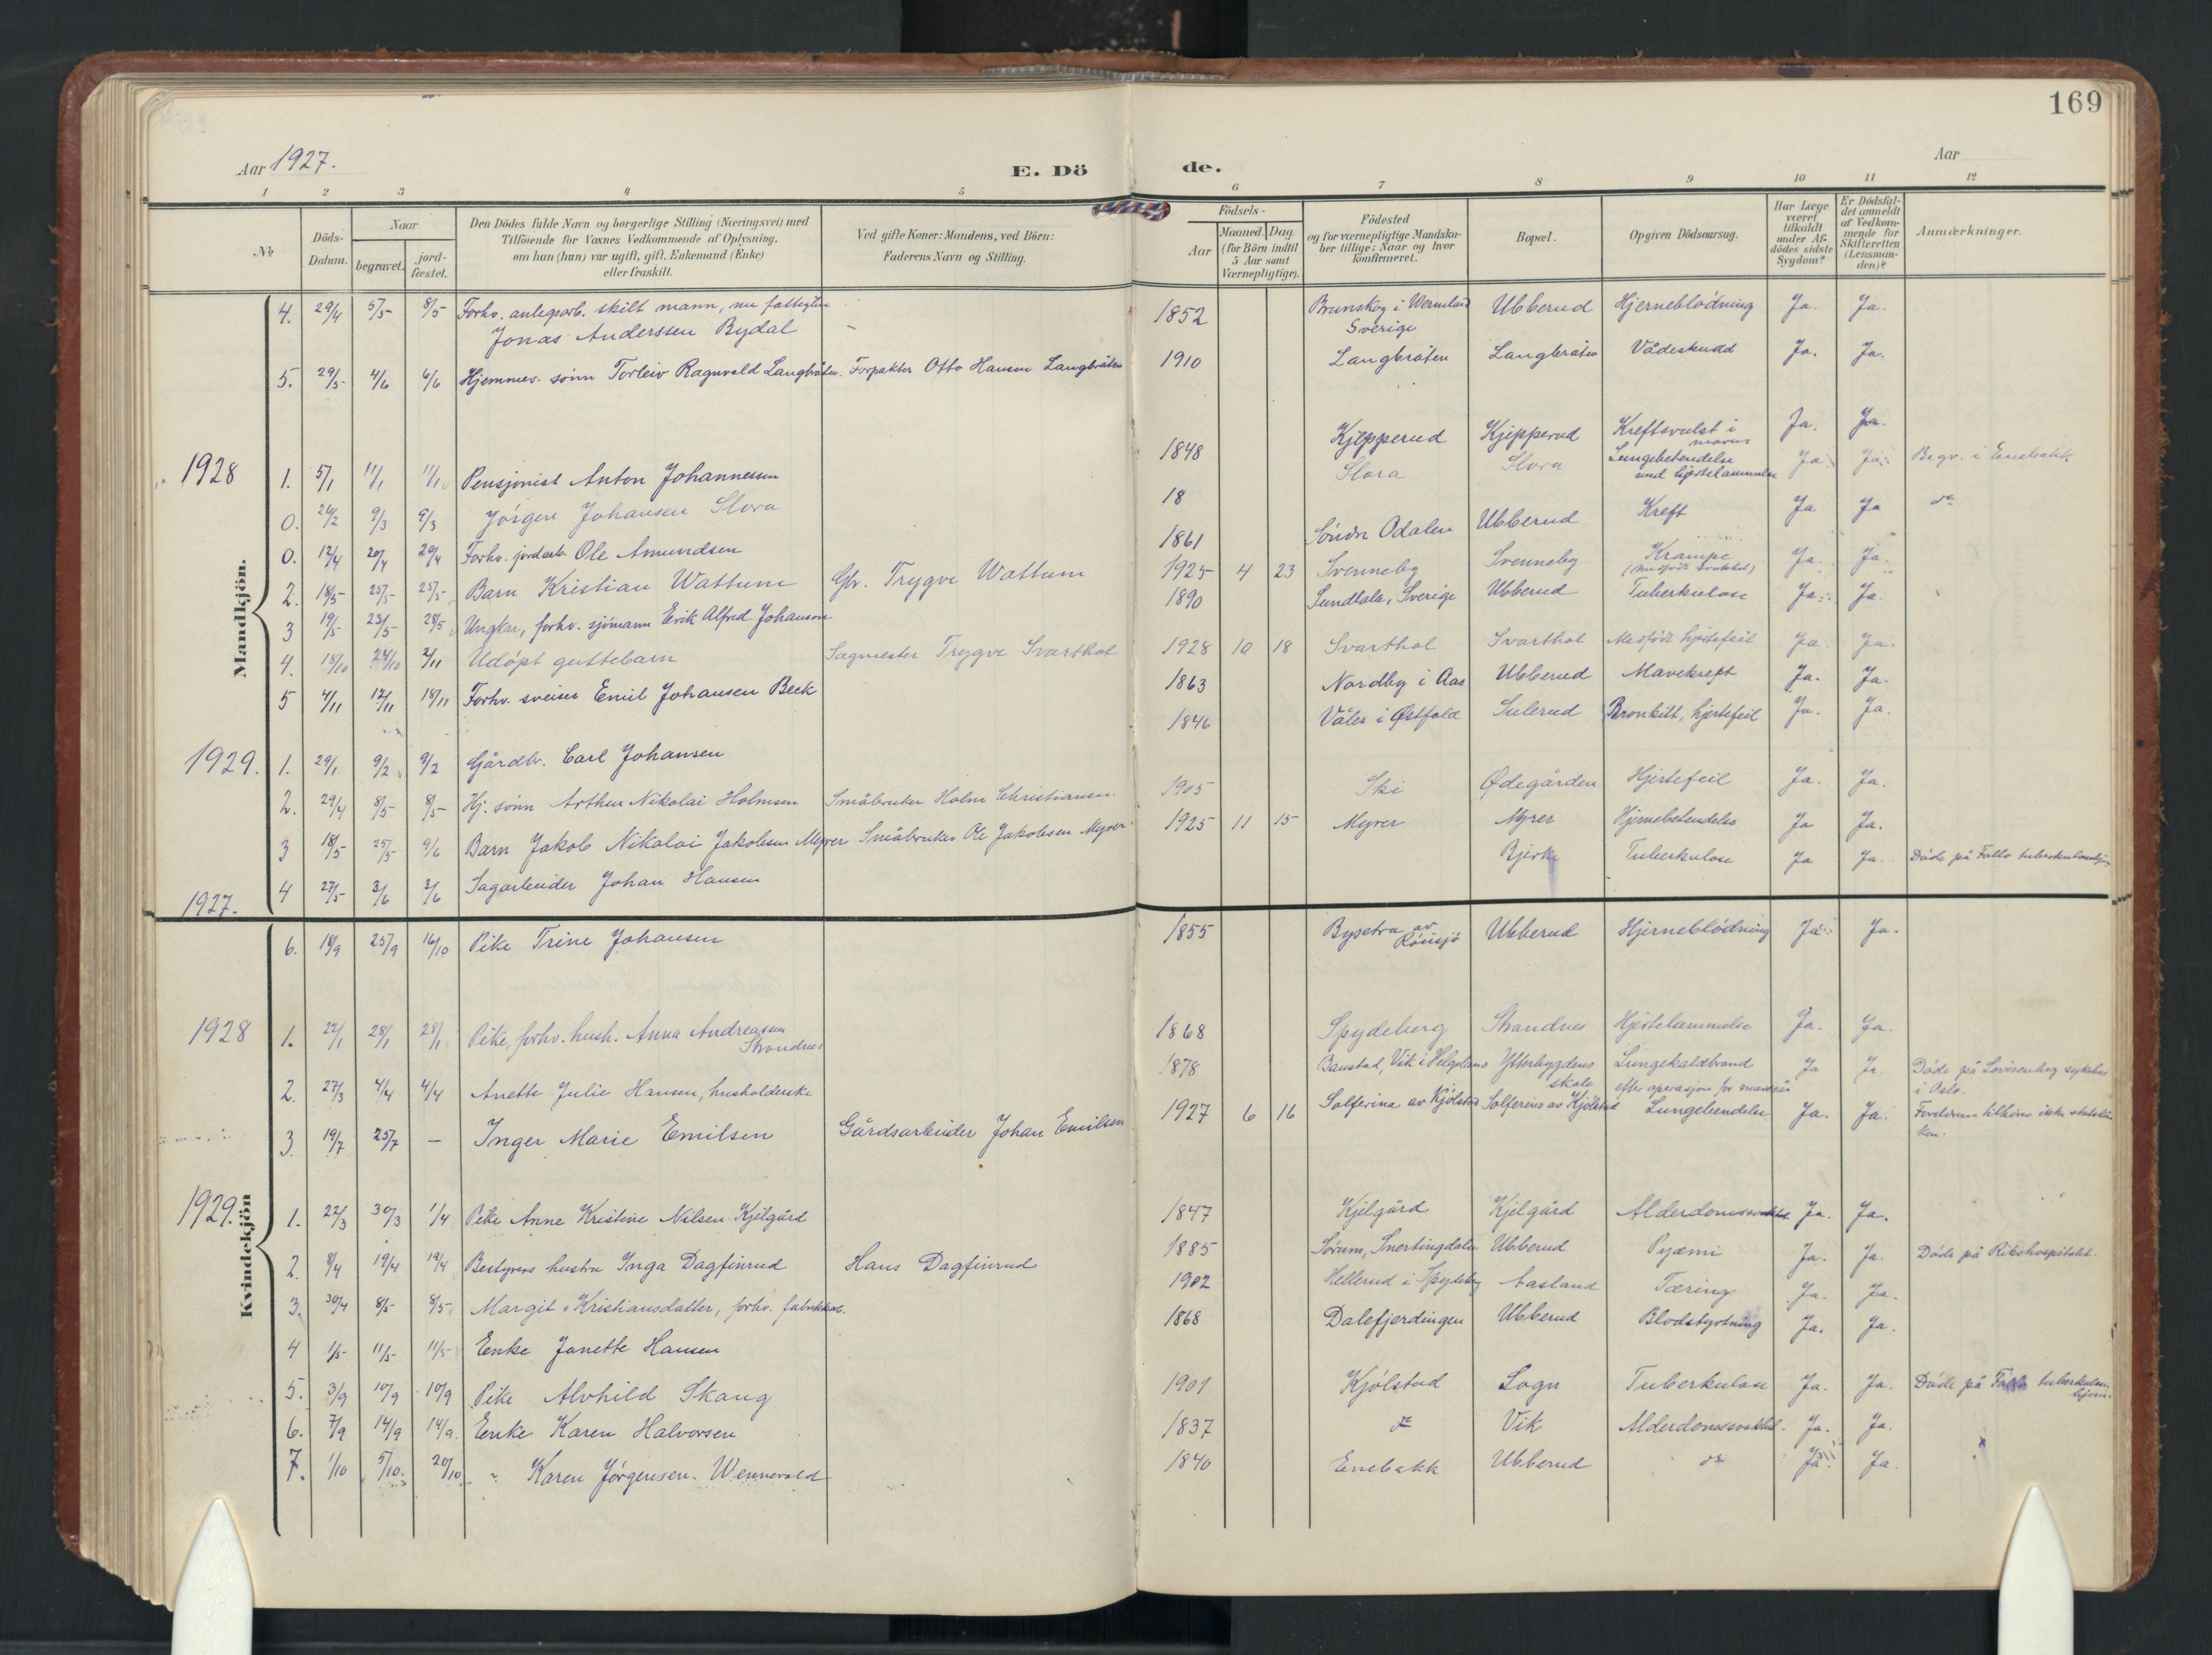 169
Aar 1927.
E. Dö de.
Aar
1 2 3 4 5 6 7 8 9 10 11 12
№
Döds-Datum.
Naar
begravet.
jord-fæstet.
Den Dödes fulde Navn og borgerlige Stilling (Næringsvei) med
Tilföiende for Voxnes Vedkommende af Oplysning.
om han (hun) var ugift, gift, Enkemand (Enke)
eller fraskilt.
Ved gifte Koner: Mandens, ved Börn:
Faderens Navn og Stilling.
Födsels-
Aar
Maaned. Dag.
(for Börn indtil
5 Aar samt
Værnepligtige).
Födested
og for værnepligtige Mandska-
ber tillige: Naar og hvor
konfirmeret.
Bopæl.
Opgiven Dödsaarsag.
Har Læge
været
tilkaldt
under Af-
dödes sidste
Sygdom?
Er Dödsfal-
det anmeldt
af Vedkom-
mende for
Skifteretten
(Lensman-
den)?
Anmærkninger.
Mandkjön.
4. 29/4 5/5 8/5 Forhv. anlegsarb. skilt mann, nu fattiglem
Jonas Anderssen Bydal – 1852 Brunskog i Wermland Sverige Ubberud Hjerneblödning Ja. Ja.
5. 29/5 4/6 6/6 Hjemmev. sönn Torleiv Ragnvald Langbråten. Forpakter Otto Hansen Langbråten 1910 Langbråten Langbråten Vådeskudd Ja. Ja.
1928
1. 5/1 11/1 11/1 Pensjonist Anton Johannessen 1848 Kjepperud Kjepperud Kreftsvulst i maven Ja. Ja.
0. 26/2 9/3 9/3 Jörgen Johansen Slora 18 Slora Slora Lungebetendelse med hjertelammelse Ja. Ja. Begr. i Enebakk.
0. 12/4 20/4 20/4 Forhv. jordarb. Ole Amundsen 1861 Söndre Odalen Ubberud Kreft Ja Ja do
2. 18/5 25/5 25/5 Barn Kristian Wattum Gbr. Trygve Wattum 1925 4 23 Svenneby Svenneby Krampe (medfödt svakhet) Ja. Ja.
3 19/5 23/5 28/5 Ungkar, forhv. sjömann Erik Alfred Johansson 1890 Sundlala, Sverige Ubberud Tuberkulose Ja. Ja.
4. 18/10 24/10 2/11 Udöpt guttebarn Sagmester Trygve Svarthol 1928 10 18 Svarthol Svarthol Medfödt hjertefeil Ja Ja.
5 4/11 12/11 18/11 Forhv. sveiser Emil Johansen Beck 1863 Nordby i Aas Ubberud Mavekreft Ja. Ja.
1929.
1. 29/1 9/2 9/2 Gårdbr. Carl Johansen 1846 Våler i Østfold Sulerud Bronkitt, hjertefeil Ja. Ja.
2. 29/4 8/5 8/5 Hj. sönn Arthur Nikolai Holmsen Småbruker Holm Christiansen. 1905 Ski Ødegården Hjertefeil Ja. Ja.
3 18/5 25/5 9/6 Barn Jakob Nikolai Jakobsen Myrer Småbruker Ole Jakobsen Myrer 1925 11 15 Myrer Myrer Hjernebetendelse Ja Ja.
4 27/5 3/6 3/6 Sagarbeider Johan Hansen Bjerke Tuberkulose Ja Ja. Döde på Follo tuberkulosehjem
Kvindekjön
1927.
6. 18/9 25/9 16/10 Pike Trine Johansen 1855 Bysetra av Röusjö Ubberud Hjerneblödning Ja. Ja.
1928
1. 22/1 28/1 28/1 Pike, forhv. hush. Anna Andreassen Strandnes 1868 Spydeberg Strandnes Hjertelammelse Ja. Ja.
2. 27/3 4/4 4/4 Anette Julie Hansen, husholderske 1878 Baustad, Vik i Helgeland Ytterbygdens skole Lungekoldbrand efter operasjon for Ja Ja. Döde på Lovisenberg sykehus i Oslo.
3. 19/7 25/7 – Inger Marie Emilsen Gårdsarbeider Johan Emilsen 1927 6 16 Solferina av Kjölstad Solferino av Kjölstad Lungebetendelse Ja. Ja. Foreldrene tilhörer ikke statskirken.
1929.
1. 22/3 30/3 1/4 Pike Anne Kristine Nilsen Kjelgård 1847 Kjelgård Kjelgård Alderdomssvakhet Ja. Ja.
2. 8/4 19/4 19/4 Bestyrers hustru Inga Dagfinrud Hans Dagfinrud 1885 Sörum, Snertingdalen Ubberud Pyæmi Ja. Ja. Döde på Rikshospitalet.
3. 30/4 8/5 8/5 Margit Kristiansdatter, forhv. fabrikkarb. 1902 Hellerud i Spydeberg Aasland Tæring Ja. Ja.
4 1/5 11/5 11/5 Enke Janette Hansen 1868 Dalefjerdingen Ubberud Blodstyrtning Ja. Ja.
5. 3/9 10/9 10/9 Pike Alvhild Skaug 1901 Kjölstad Sogn Tuberkulose Ja. Ja. Döde på Follo tuberkulosehjem.
6. 7/9 14/9 14/9 Enke Karen Halvorsen 1837 do Vik Alderdomssvakhet. Ja. Ja.
7. 1/10 5/10 20/10 " Karen Jörgensen. Wennevold 1840 Enebakk Ubberud do Ja. Ja.